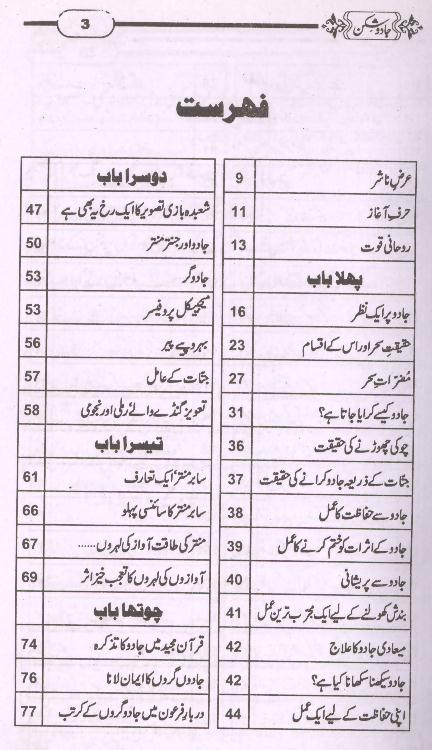 جادو شکن
3
فہرست
عرضِ ناشر 9
حرفِ آغاز 11
روحانی قوت 13
پہلا باب
جادو پر ایک نظر 16
حقیقتِ سحر اور اس کے اقسام 23
مضراتِ سحر 27
جادو کیسے کرایا جاتا ہے؟ 31
چوکی چھوڑنے کی حقیقت 36
جنّات کے ذریعہ جادو کرانے کی حقیقت 37
جادو سے حفاظت کا عمل 38
جادو کے اثرات کو ختم کرنے کا عمل 39
جادو سے پریشانی 40
بندش کھولنے کے لیے ایک مجرّب ترین عمل 41
میعادی جادو کا علاج 42
جادو سیکھنا سکھانا کیا ہے؟ 42
اپنی حفاظت کے لیے ایک عمل 44
دوسرا باب
شعبدہ بازی تصویر کا ایک رخ یہ بھی ہے 47
جادو اور جنتر منتر 50
جادوگر 53
میجیکل پروفیسر 53
بہروپیے پیر 56
جنّات کے عامل 57
تعویز گنڈے والے رملی اور نجومی 58
تیسرا باب
سابر منتر، ایک تعارف 61
سابر منتر کا سائنسی پہلو 66
منتر کی طاقت آواز کی لہروں...... 67
آوازوں کی لہروں کا تعجب خیز اثر 69
چوتھا باب
قرآن مجید میں جادو کا تذکرہ 74
جادوگروں کا ایمان لانا 76
دربارِ فرعون میں جادوگروں کے کرتب 77